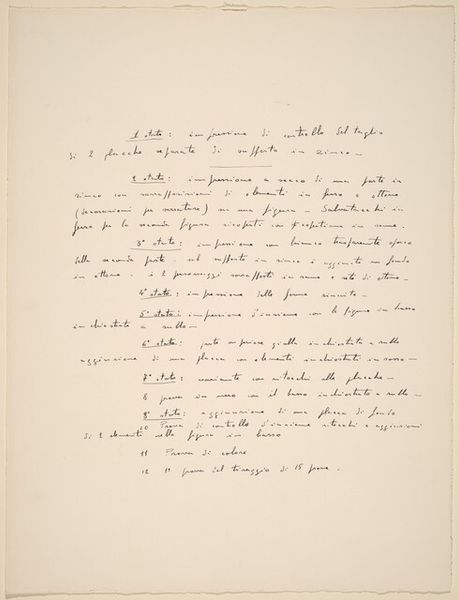 1 stato: impressione di controllo del taglio
di 2 placche separate di supporto in zinco —
2 stato: impressione a secco di una parte in
zinco con sovrapposizioni di elementi in ferro e ottone
(decorazioni per serrature) su una figura — in
ferro per la seconda figura ricoperti con in rame.
3° stato: impressione con bianco trasparente opaco
della seconda parte. sul supporto in zinco è aggiunto un fondo
in ottone. i 2 personaggi in rame e di ottone —
4° stato: impressione delle forme —
5° stato: impressione d'insieme con la figura in basso
inchiostrata a rullo —
6° stato: giallo inchiostrata a rullo
aggiunzione di una placca con elementi inchiostrati in rosso —
7° stato: variante con ritocchi alle placche —
8 prova in nero con il basso inchiostrato a rullo —
8° stato: aggiunzione di una placca di fondo
10 Prova di controllo d'insieme ritocchi e aggiunzioni
di 2 elementi nella figura in basso
11 Prova di colore
12 1ª prova del tiraggio di 15 prove.